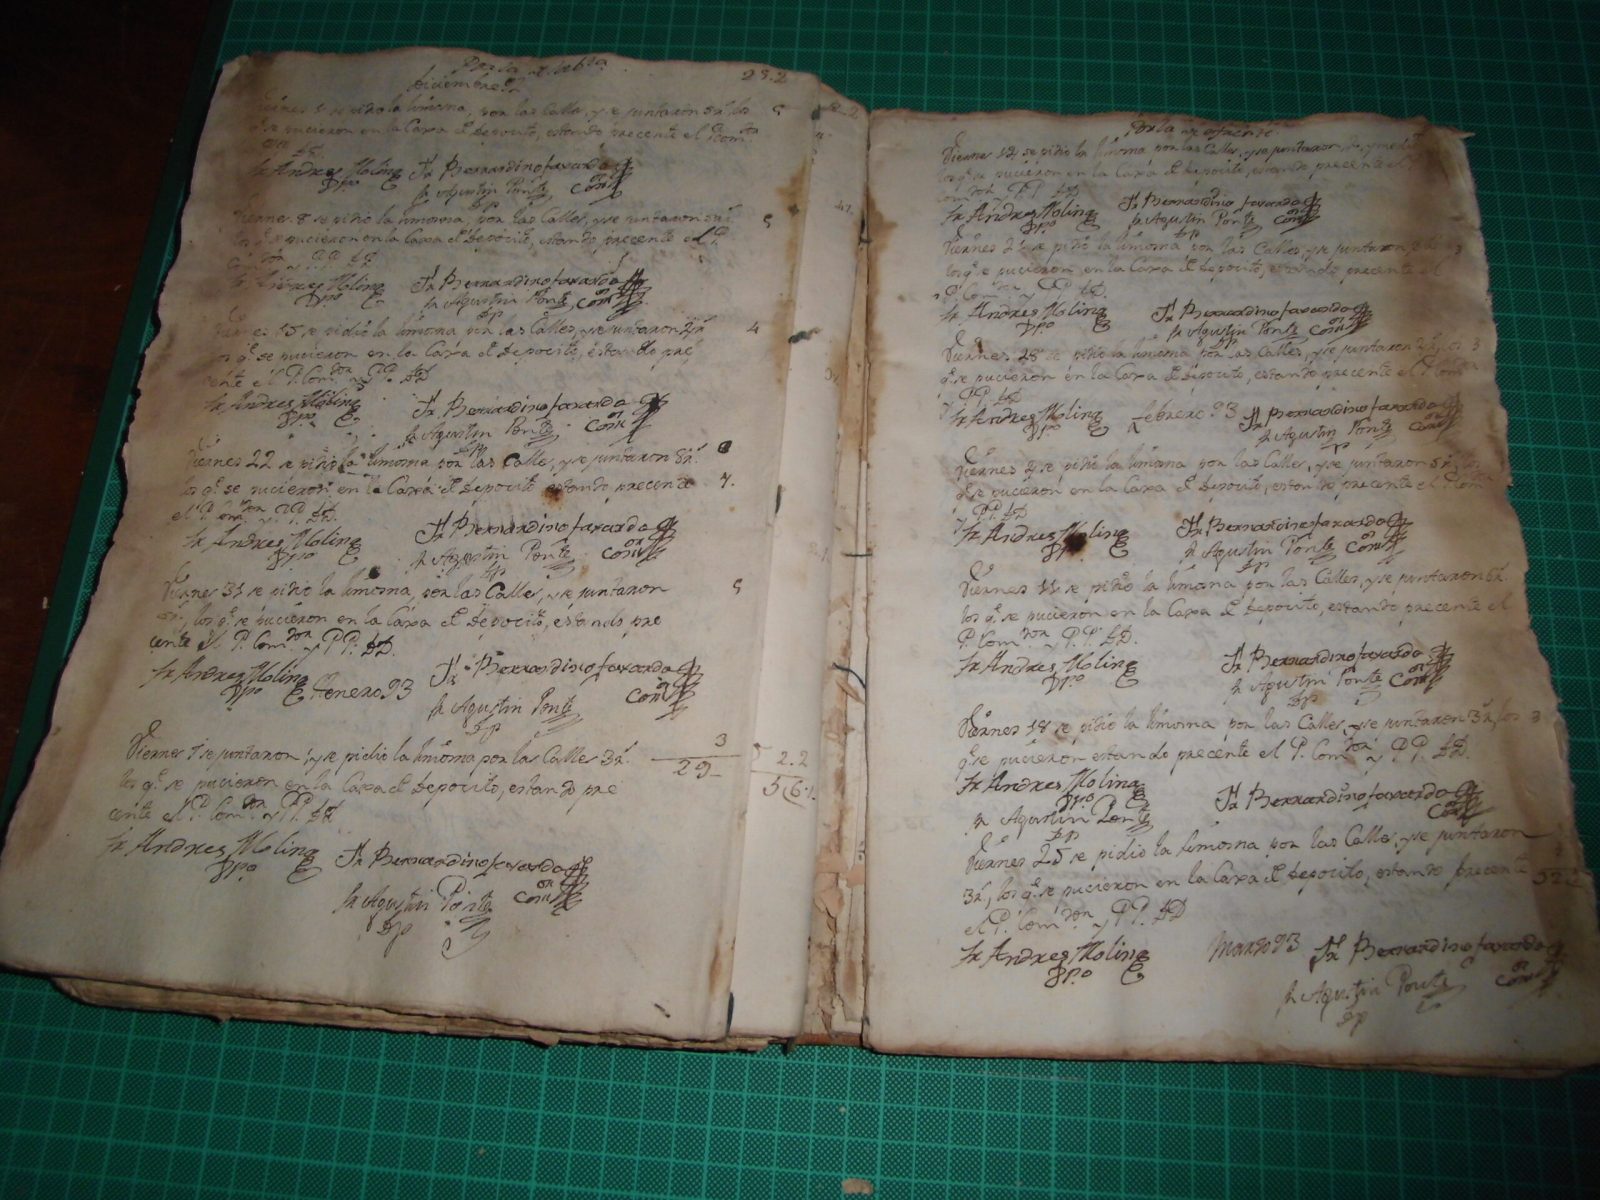 23.2
Diciembre 92
se pidio la limosna, por las Calles, y se juntaron 5 r.s los 5
q.e se pucieron en la Caxa de deposito, estando precente el P. Com.dor
Fr Andres Molina Fr Bernardino faxardo
Dpo Fr Agustin Ponte Com.or
Dp
Viernes 8 se pidio la limosna, por las Calles, y se juntaron 5
los q.e se pucieron en la Caxa de deposito, estando precente el P.
Com.dor y PP. DD.
Fr Andres Molina Fr Bernardino faxardo
Dpo Fr Agustin Ponte Com.or
Dp
Viernes 15 se pidio la limosna por las Calles, y se juntaron 4
los q.e se pucieron en la Caxa de deposito, estando pre
cente el P. Com.dor y PP. DD
Fr Andres Molina Fr Bernardino faxardo
Dpo Fr Agustin Ponte Com.or
Dp
Viernes 22 se pidio la limosna por las Calles, y se juntaron
los q.e se pucieron en la Caxa de deposito estando precente 7.
el P. Com.dor y PP. DD.
Fr Andres Molina Fr Bernardino faxardo
Dpo Fr Agustin Ponte Com.or
Dp
Viernes se pidio la limosna, por las Calles, y se juntaron 5
los q.e se pucieron en la Caxa de deposito, estando pre
cente el P. Com.dor y PP. DD.
Fr Andres Molina Fr Bernardino faxardo
Dpo Enero 93 Fr Agustin Ponte Com.or
Dp
Viernes se juntaron y se pidio la limosna por las Calles 3 r.s 3
los q.e se pucieron en la Caxa de deposito, estando pre 29
cente el P. Com.dor y PP. DD
Fr Andres Molina Fr Bernardino faxardo
Dpo Fr Agustin Ponte Com.or
Dp
2.2
56.1.
Por la
Viernes se pidio la limosna por las Calles, y se juntaron
los q.e se pucieron en la Caxa de deposito, estando precente el
Com.dor y PP. DD
Fr Andres Molina Fr Bernardino faxardo
Dpo Fr Agustin Ponte Com.or
Dp
Viernes 21 se pidio la limosna por las Calles, y se juntaron 3
los q.e se pucieron en la Caxa de deposito, estando precente el
P. Com.dor y PP. DD.
Fr Andres Molina Fr Bernardino faxardo
Dpo Fr Agustin Ponte Com.or
Dp
Viernes 28 se pidio la limosna por las Calles, y se juntaron los 3
q.e se pucieron en la Caxa de deposito, estando precente el P. Com.dor
y PP. DD
Fr Andres Molina febrero 93 Fr Bernardino faxardo
Dpo Fr Agustin Ponte Com.or
Viernes se pidio la limosna por las Calles, y se juntaron 5 r.s los
q.e se pucieron en la Caxa de deposito, estando precente el P. Com.dor
y PP. DD
Fr Andres Molina Fr Bernardino faxardo
Dpo Fr Agustin Ponte Com.or
Dp
Viernes 11 se pidio la limosna por las Calles, y se juntaron 6 r.s
los q.e se pucieron en la Caxa de deposito, estando precente el
P. Com.dor y PP. DD.
Fr Andres Molina Fr Bernardino faxardo
Dpo Fr Agustin Ponte Com.or
Dp
Viernes 18 se pidio la limosna por las Calles, y se juntaron 3 r.s, los 3
q.e se pucieron estando precente el P. Com.dor y PP. DD.
Fr Andres Molina
Dpo Fr Bernardino faxardo
Fr Agustin Ponte Com.or
Dp
Viernes 25 se pidio la limosna por las Calles, y se juntaron
3 r.s, los q.e se pucieron en la Caxa de deposito, estando precente
el P. Com.dor y PP. DD
Fr Andres Molina Marzo 93 Fr Bernardino faxardo
Dpo Fr Agustin Ponte Com.or
Dp